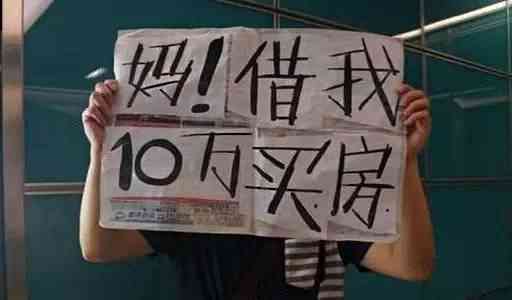 妈！借我
10万买房.